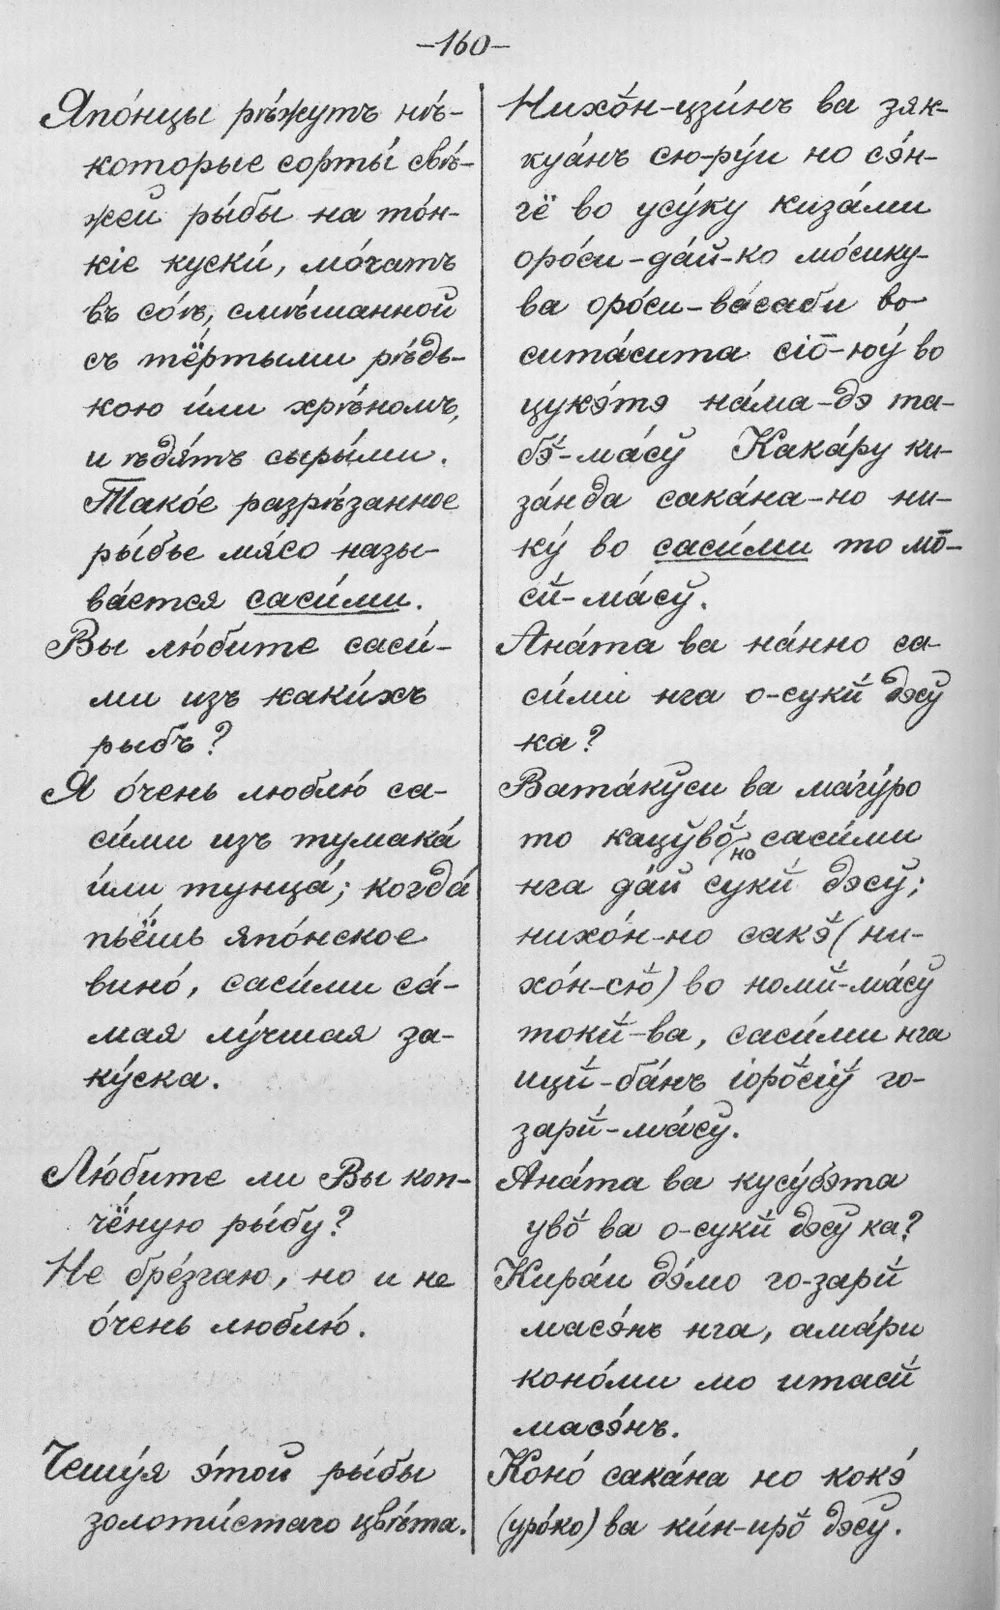 —160—
Япо́нцы рѣ́жутъ нѣ́-
которые сорты́ свѣ́-
жей ры́бы на то́н-
кіе куски́, мо́чатъ
въ со́ѣ, смѣ́шанной
съ тёртыми рѣ́дь-
кою и́ли хрѣ́номъ,
и ѣдя́тъ сыры́ми.
Тако́е разрѣ́занное
ры́бье мя́со назы-
ва́ется саси́ми.
Вы лю́бите саси́-
ми изъ каки́хъ
рыбъ?
Я о́чень люблю́ са-
си́ми изъ тумака́
и́ли тунца́; когда́
пьёшь япо́нское
вино́, саси́ми са́-
мая лу́чшая за-
ку́ска.
Лю́бите ли Вы коп-
чёную ры́бу?
Не бре́згаю, но и не
о́чень люблю́.
Чешуя́ э́той ры́бы
золоти́стаго цвѣ́та.
Нихо́н-цзи́нъ ва зяк-
куа́нъ сю-ру́и но сэ́н-
гё во усу́ку киза́ми
оро́си-да́й-ко мо́сику-
ва оро́си-ва́саби во
сита́сита сіо̄-ю́у во
цукэ́тэ на́ма-дэ та-
бэ̆́-ма́сӯ̆ Кака́ру ки-
за́нда сака́на-но ни-
ку́ во саси́ми то мо̄-
сӣ̆-ма́сў.
Ана́та ва на́нно са-
си́ми нга о-сукй́ дэсў
ка?
Вата́кўси ва магу́ро
то кацўво̆́ но саси́ми
нга да́й сукй́ дэсў;
нихо́н-но сакэ̆́ (ни-
хо́н-сю̆́) во номй́-ма́сў
токй́-ва, саси́ми нга
ицй́-ба́нъ іоро̆́сіў го-
зарй́-ма́сў.
Ана́та ва кусу́бэта
уво̆́ ва о-сукй́ дэсў ка?
Кира́и дэ́мо го-зарй́
масэ́нъ нга, ама́ри
коно́ми мо итасй́
масэ́нъ.
Коно́ сака́на но кокэ́
(уро́ко) ва ки́н-иро̆́ дэсў.